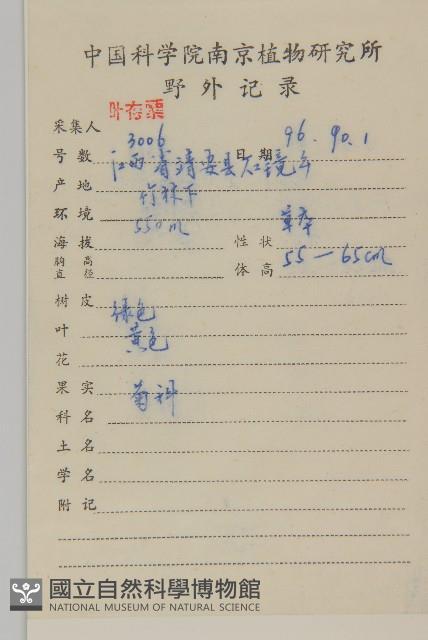 中国科学院南京植物研究所
野外记录
采集人 叶存粟
号数 3006 日期 96.90.1
产地 江西省靖安县
环境 竹林下
海拔 550m 性状 草本
胸高直径 体高 55—65cm
树皮
叶 绿色
花 黄色
果实
科名 菊科
土名
学名
附记
國立自然科學博物館
NATIONAL MUSEUM OF NATURAL SCIENCE